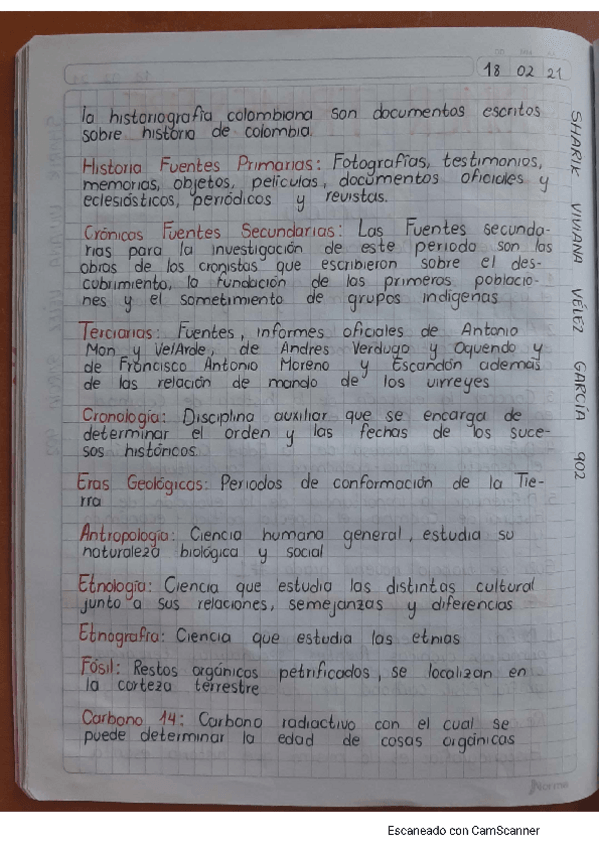 18 02 21
la historiografía colombiana son documentos escritos
sobre historia de colombia.
Historia Fuentes Primarias: Fotografías, testimonios,
memorias, objetos, películas, documentos oficiales y
eclesiásticos, periódicos y revistas.
Crónicas Fuentes Secundarias: Las Fuentes secunda-
rias para la investigación de este periodo son las
obras de los cronistas que escribieron sobre el des-
cubrimiento, la fundación de las primeras poblacio-
nes y el sometimiento de grupos indígenas
Terciarias: Fuentes, informes oficiales de Antonio
Mon y VelArde, de Andres Verdugo y Oquendo y
de Francisco Antonio Moreno y Escandón además
de las relación de mando de los virreyes
Cronología: Disciplina auxiliar que se encarga de
determinar el orden y las fechas de los suce-
sos históricos.
Eras Geológicas: Periodos de conformación de la Tie-
rra
Antropología: Ciencia humana general, estudia su
naturaleza biológica y social
Etnología: Ciencia que estudia las distintas cultural
junto a sus relaciones, semejanzas y diferencias
Etnografía: Ciencia que estudia las etnias
Fósil: Restos orgánicos petrificados, se localizan en
la corteza terrestre
Carbono 14: Carbono radiactivo con el cual se
puede determinar la edad de cosas orgánicas
SHARIK VIVIANA VÉLEZ GARCÍA 902
Norma
Escaneado con CamScanner